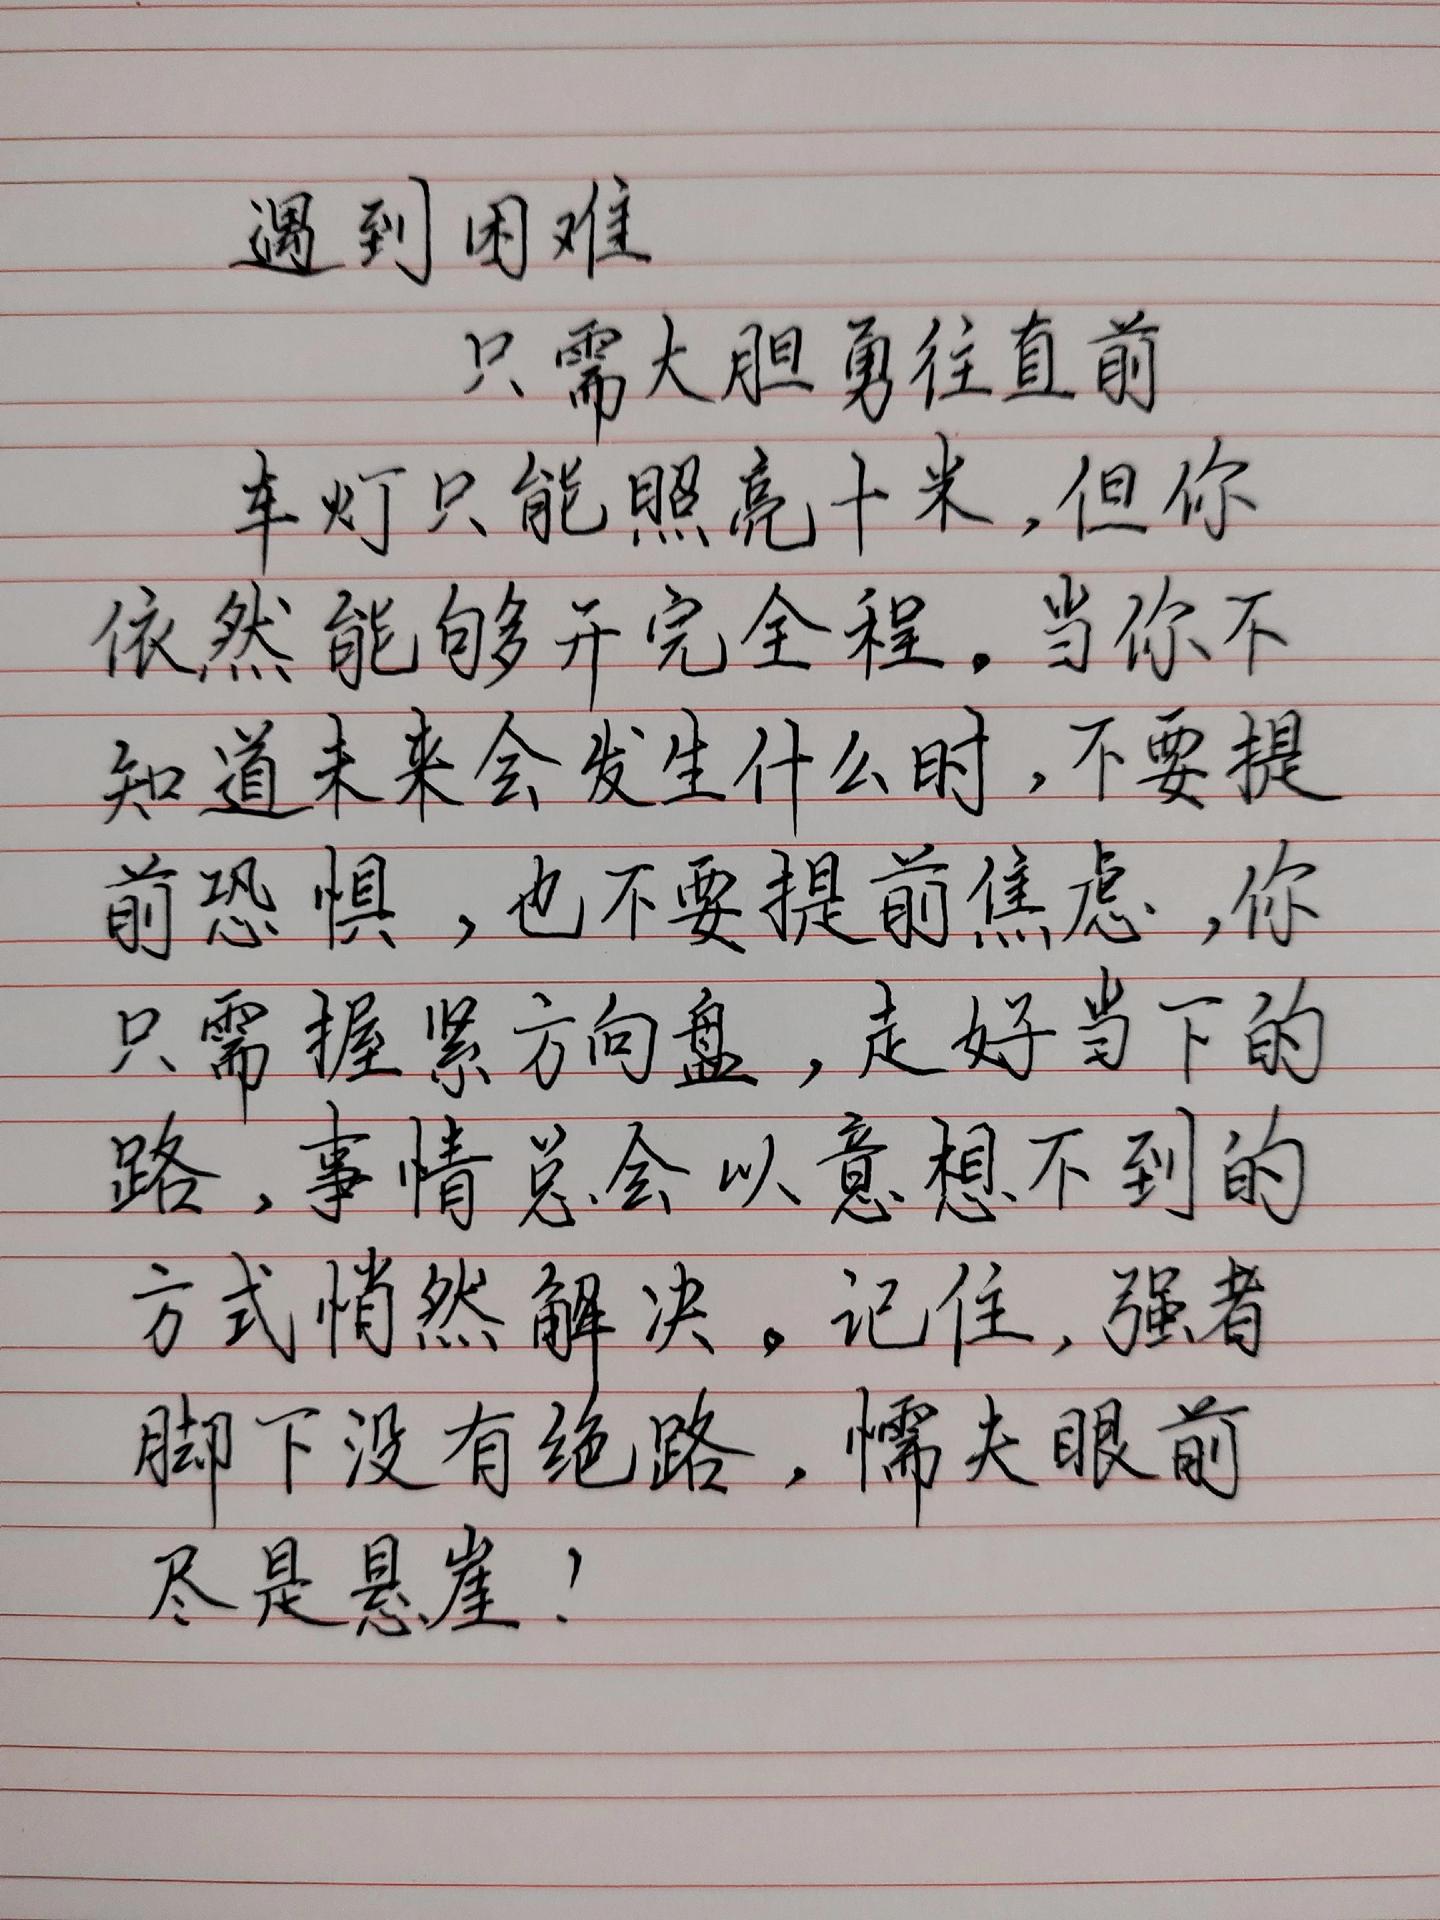 遇到困难
只需大胆勇往直前
车灯只能照亮十米,但你
依然能够开完全程。当你不
知道未来会发生什么时,不要提
前恐惧,也不要提前焦虑,你
只需握紧方向盘,走好当下的
路,事情总会以意想不到的
方式悄然解决。记住,强者
脚下没有绝路,懦夫眼前
尽是悬崖!